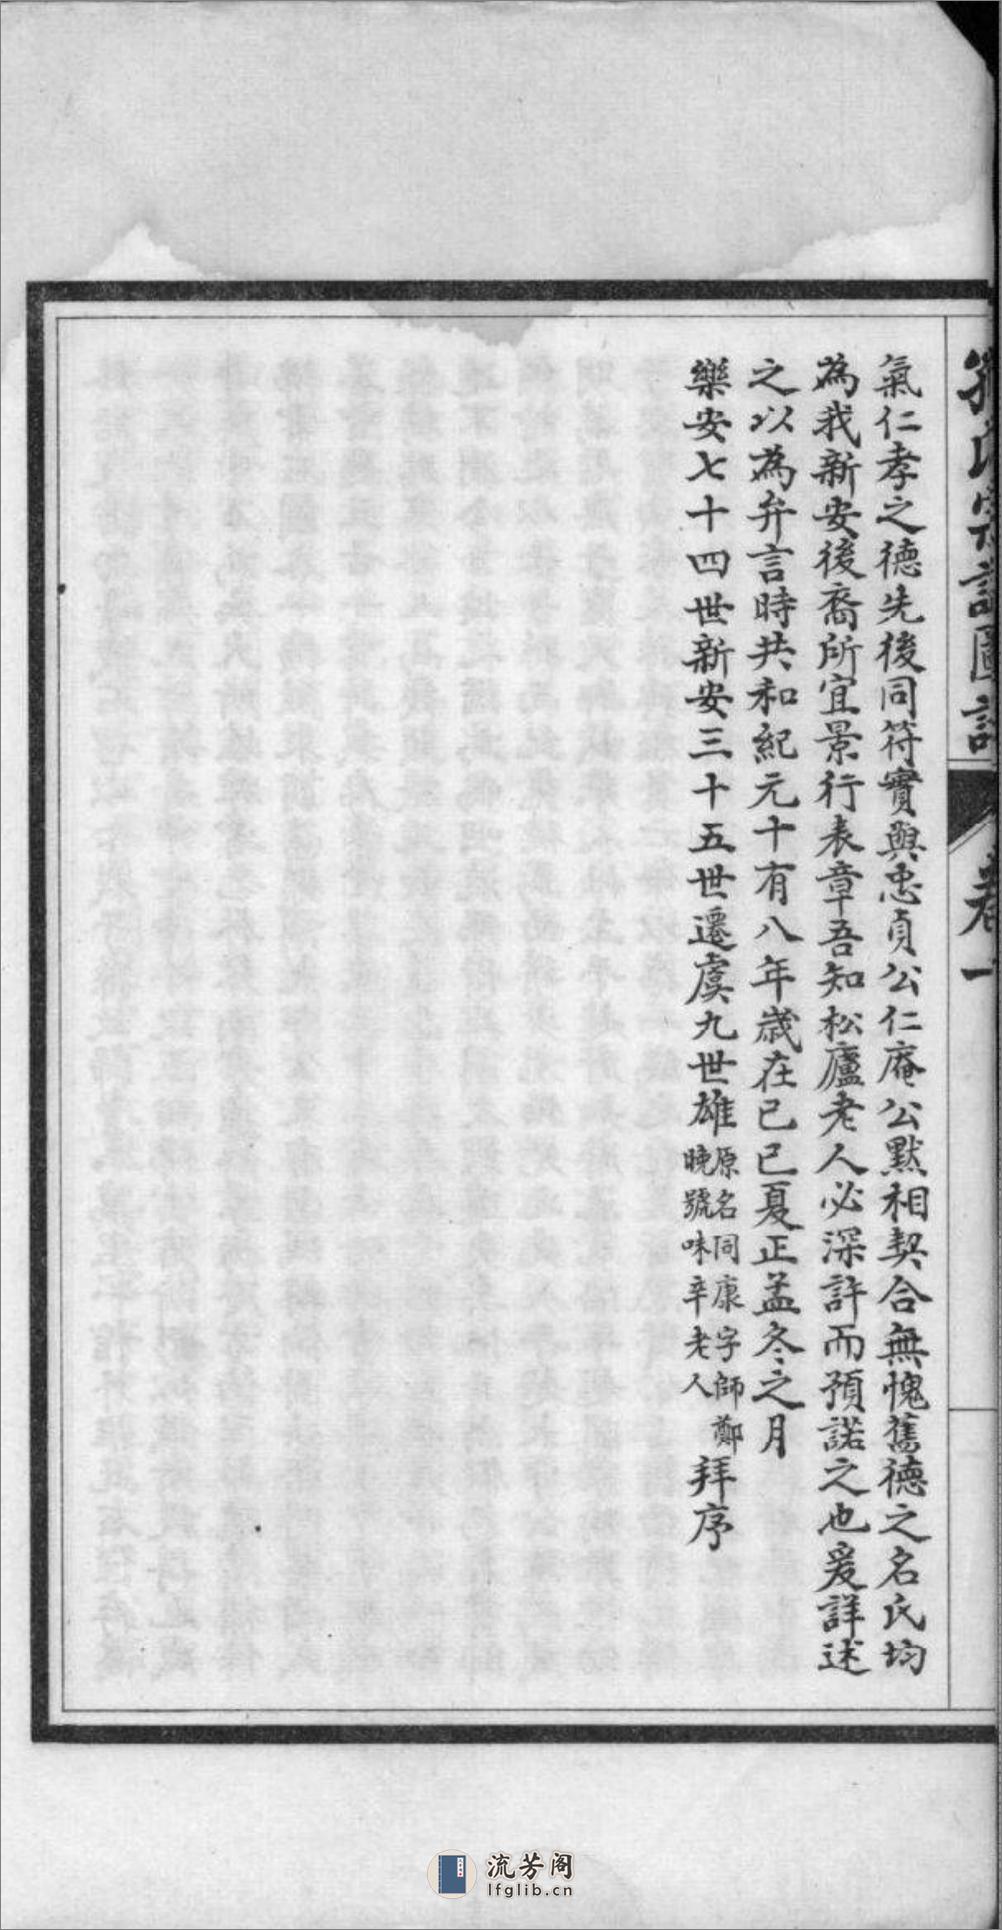 氣仁孝之德先後同符實與忠貞公仁庵公默相契合無愧舊德之名氏均
為我新安後裔所宜景行表章吾知松廬老人必深許而預諾之也爰詳述
之以為弁言時共和紀元十有八年歲在己巳夏正孟冬之月
樂安七十四世新安三十五世遷虞九世雄
原名同康字師鄭
晚號味辛老人
拜序
卷一
流芳阁
lfglib.cn